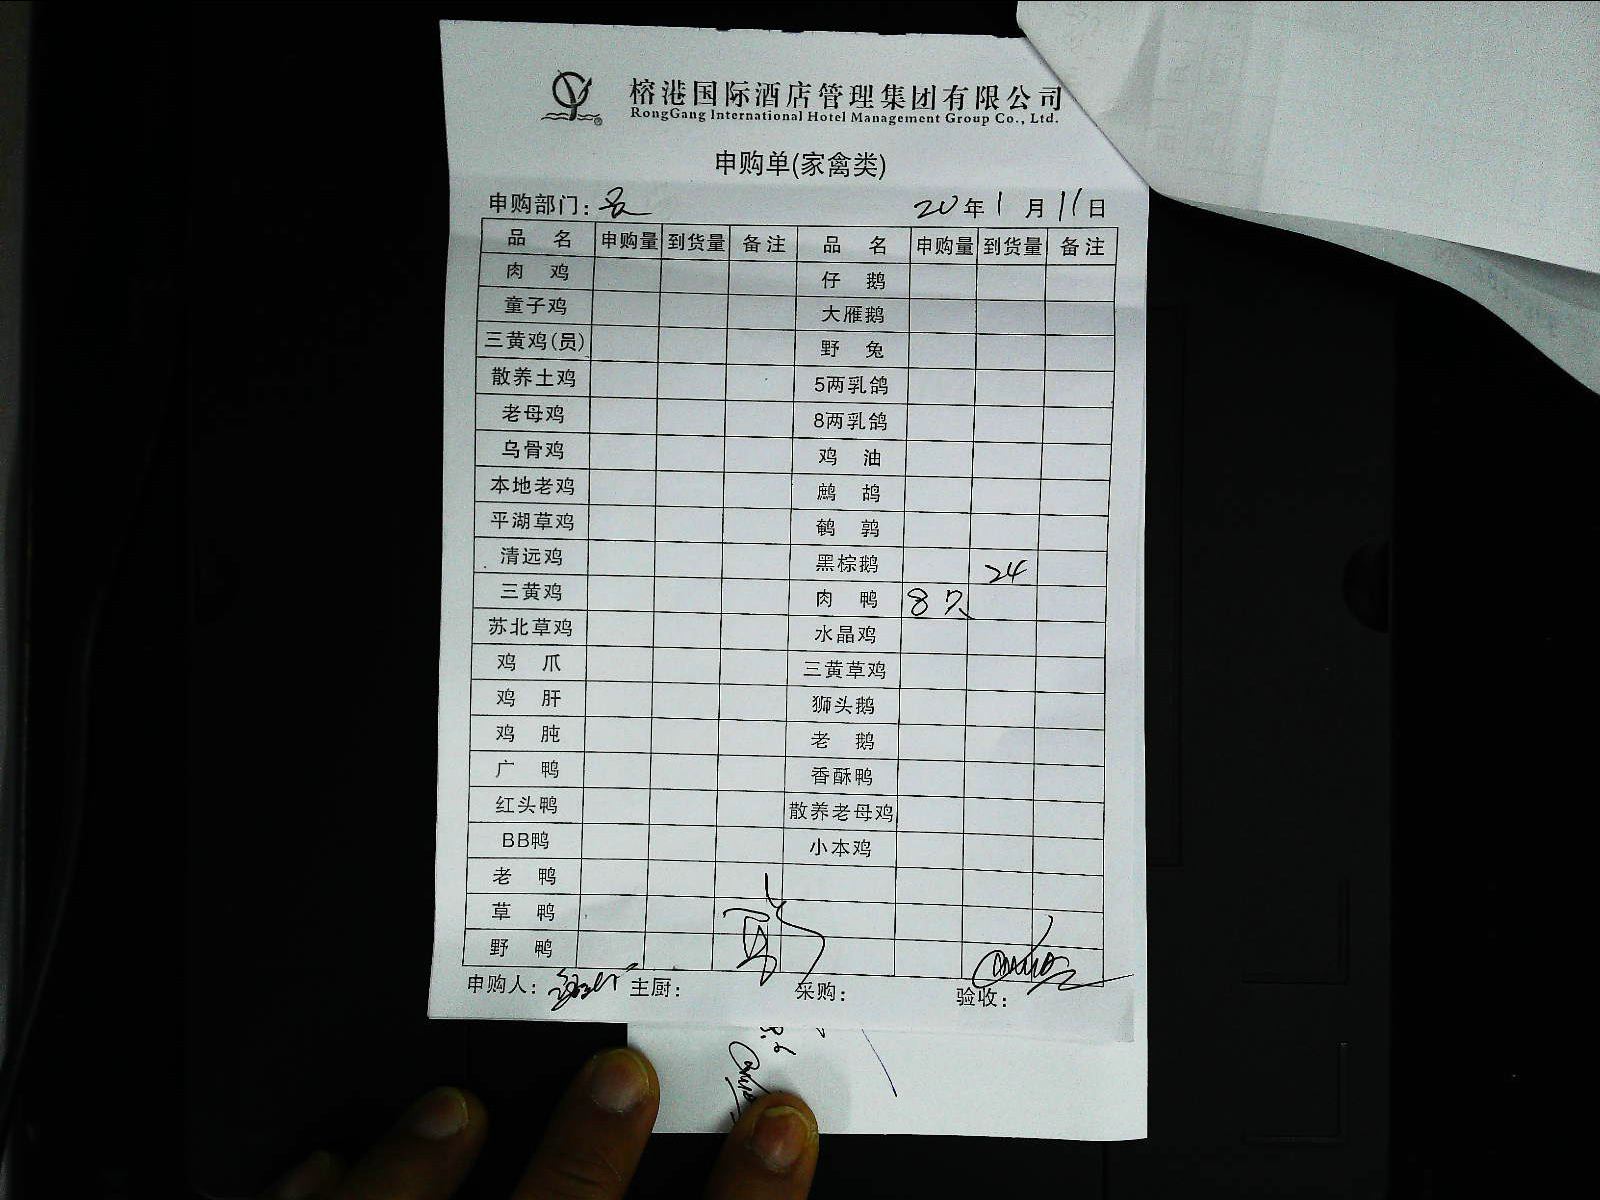 榕港国际酒店管理集团有限公司
RongGang International Hotel Management Group Co., Ltd.
申购单(家禽类)
申购部门： 20年1月11日
品名 申购量 到货量 备注 品名 申购量 到货量 备注
肉鸡 仔鹅
童子鸡 大雁鹅
三黄鸡(员) 野兔
散养土鸡 5两乳鸽
老母鸡 8两乳鸽
乌骨鸡 鸡油
本地老鸡 鹧鸪
平湖草鸡 鹌鹑
清远鸡 黑棕鹅 24
三黄鸡 肉鸭 8只
苏北草鸡 水晶鸡
鸡爪 三黄草鸡
鸡肝 狮头鹅
鸡肫 老鹅
广鸭 香酥鸭
红头鸭 散养老母鸡
BB鸭 小本鸡
老鸭
草鸭
野鸭
申购人： 主厨： 采购： 验收：